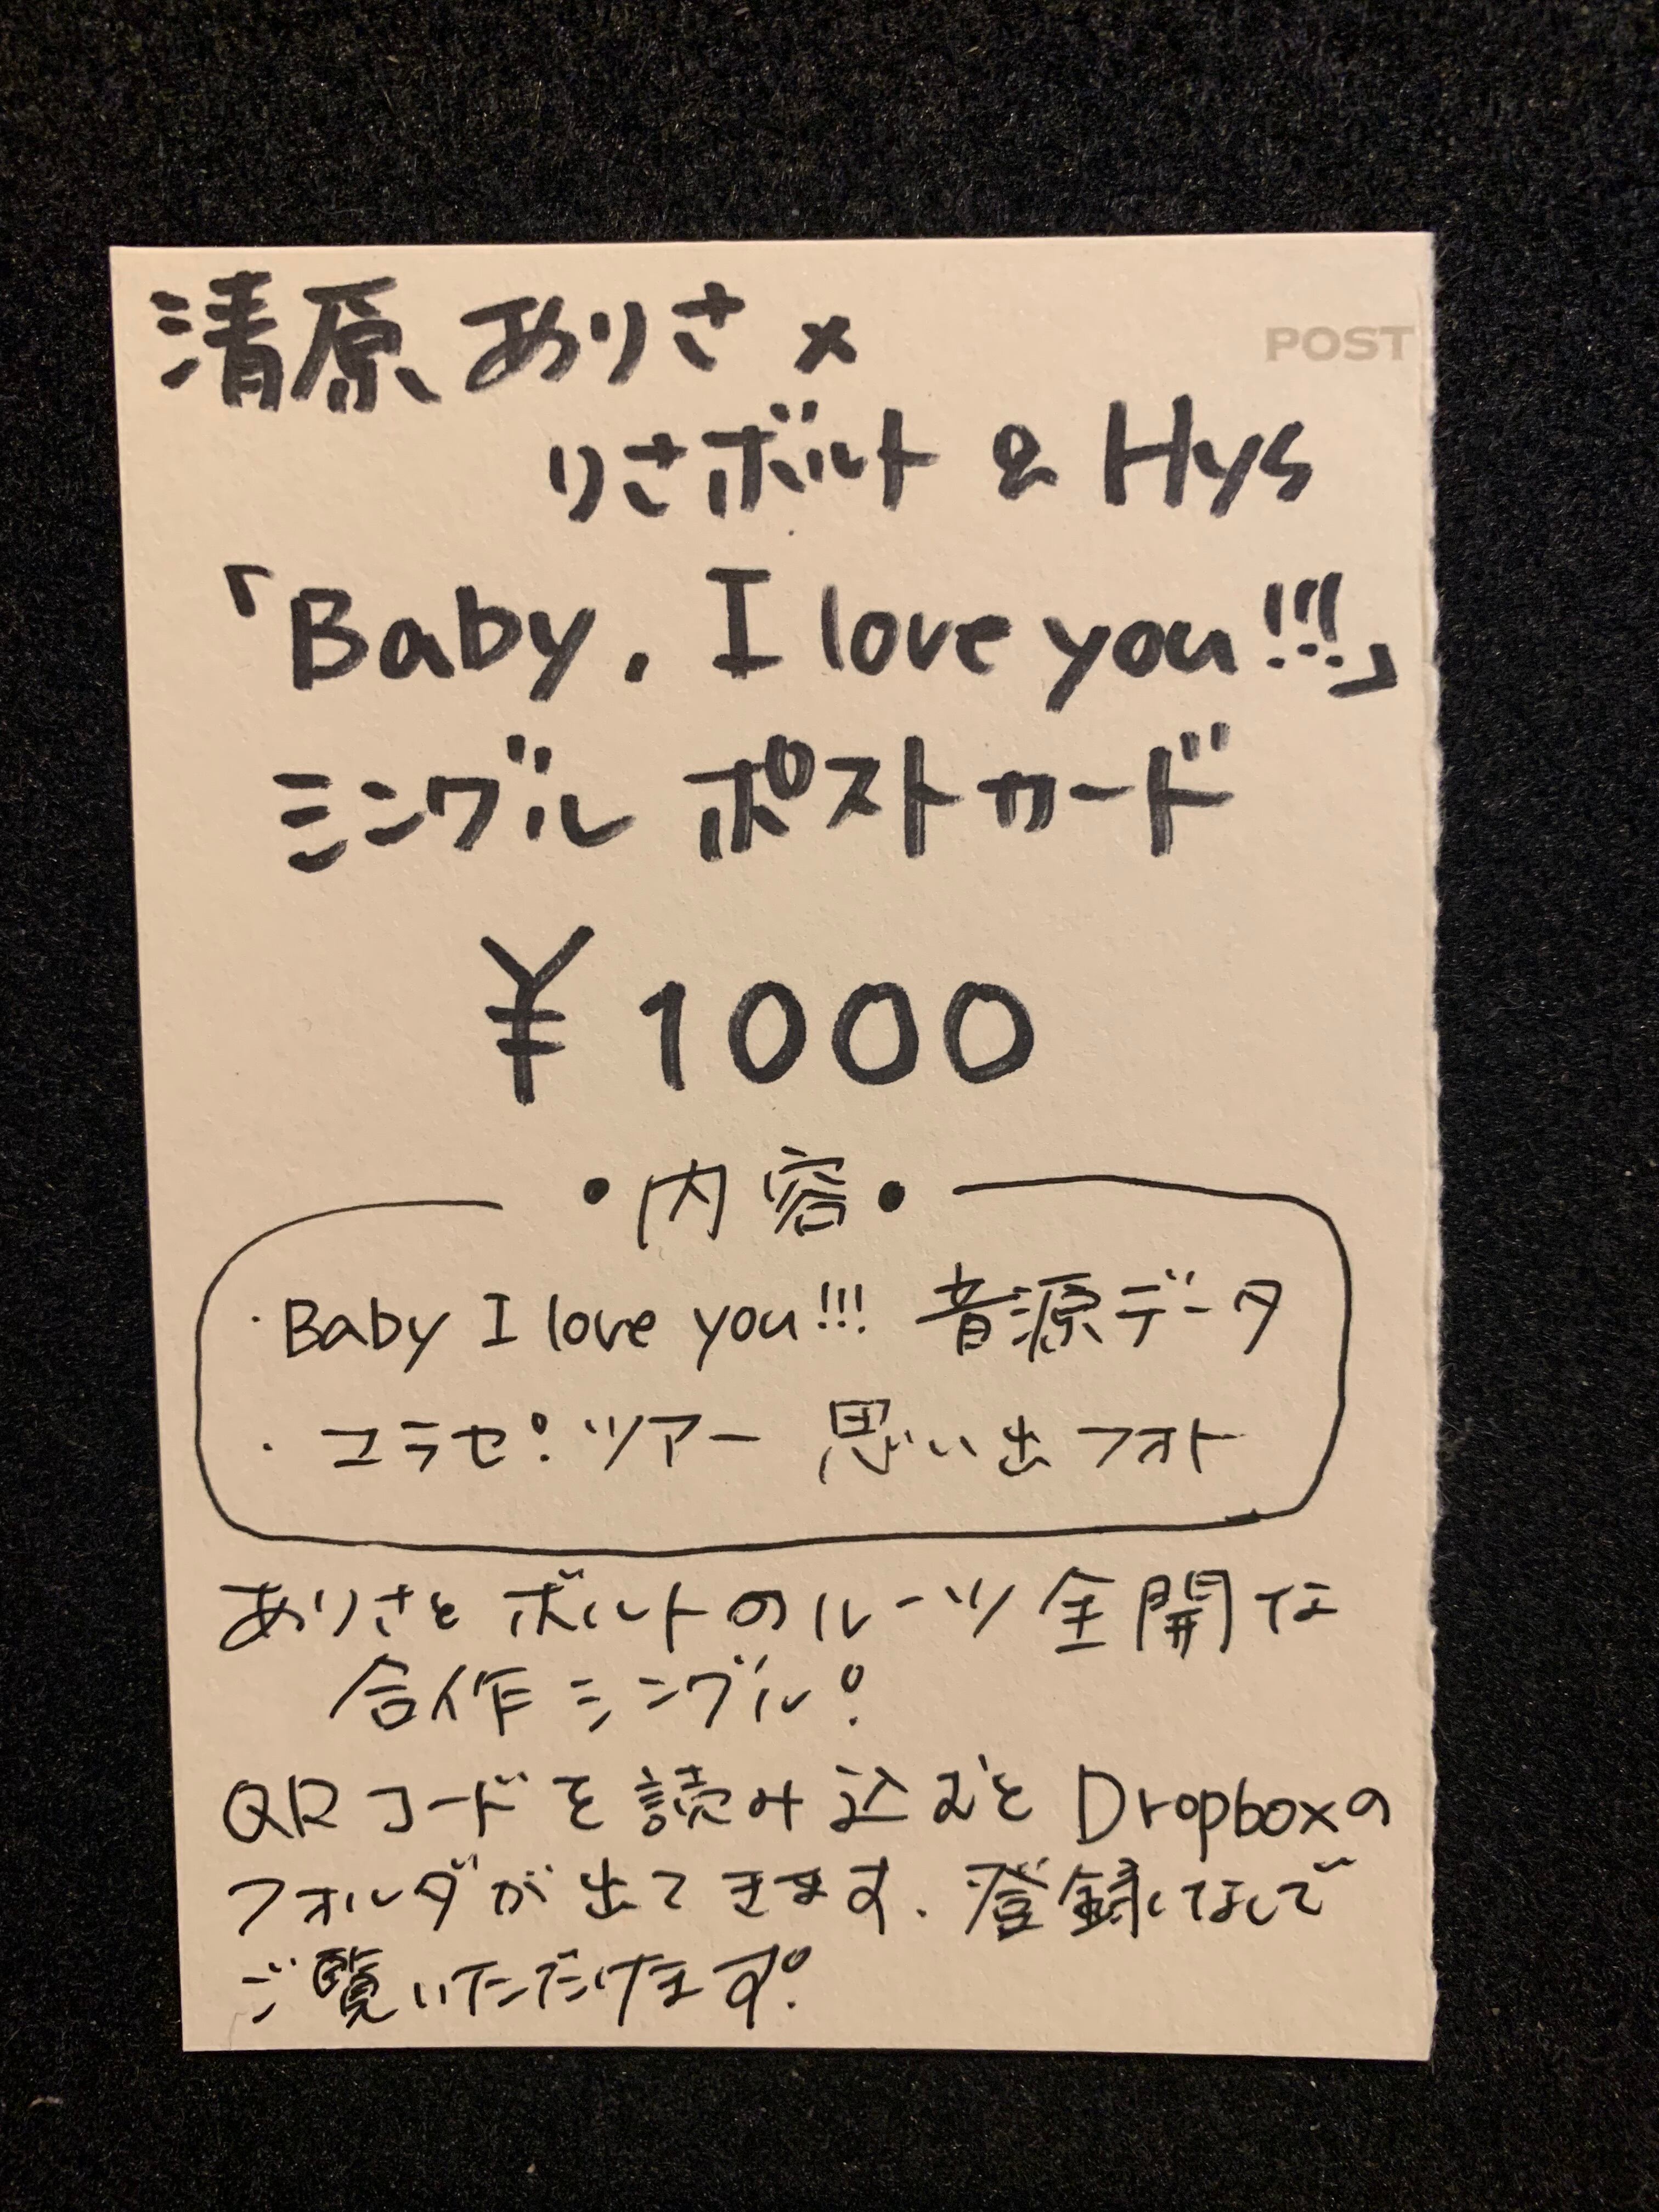 清原ありさ×
POST
りさボルト&Hys
「Baby, I love you!!!」
シングル ポストカード
¥1000
・内容・
・Baby I love you!!! 音源データ
・コラセ。ツアー 思い出フォト
ありさとボルトのルーツ全開な
合作シングル。
QRコードを読み込むとDropboxの
フォルダが出てきます、登録なしで
ご覧いただけます。